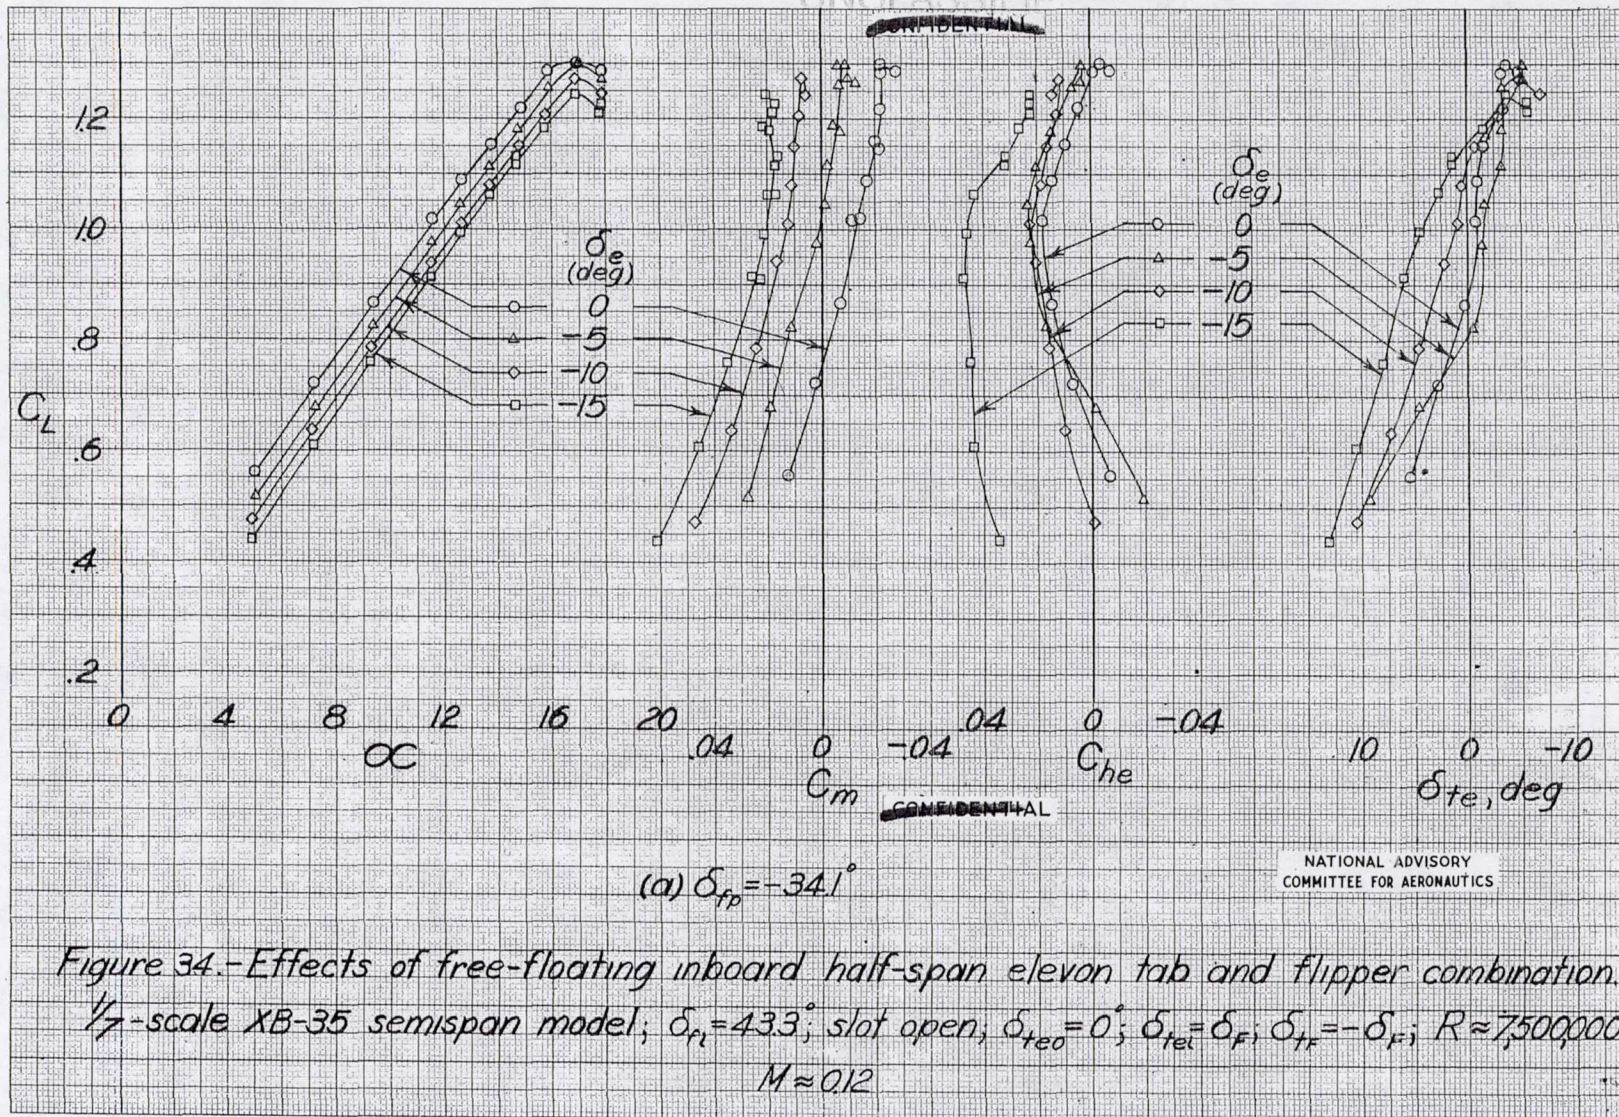 CONFIDENTIAL
1.2
1.0
.8
.6
.4
.2
C_L
δ_e
(deg)
0
-5
-10
-15
δ_e
(deg)
0
-5
-10
-15
0 4 8 12 16 20
∝
.04 0 -.04
C_m
.04 0 -.04
C_he
10 0 -10
δ_te, deg
CONFIDENTIAL
(a) δ_fp=-34.1°
NATIONAL ADVISORY
COMMITTEE FOR AERONAUTICS
Figure 34.-Effects of free-floating inboard half-span elevon tab and flipper combination.
1/7-scale XB-35 semispan model; δ_fi=43.3°; slot open; δ_teo=0°; δ_tei=δ_F; δ_tF=-δ_F; R≈7,500,000
M≈0.12